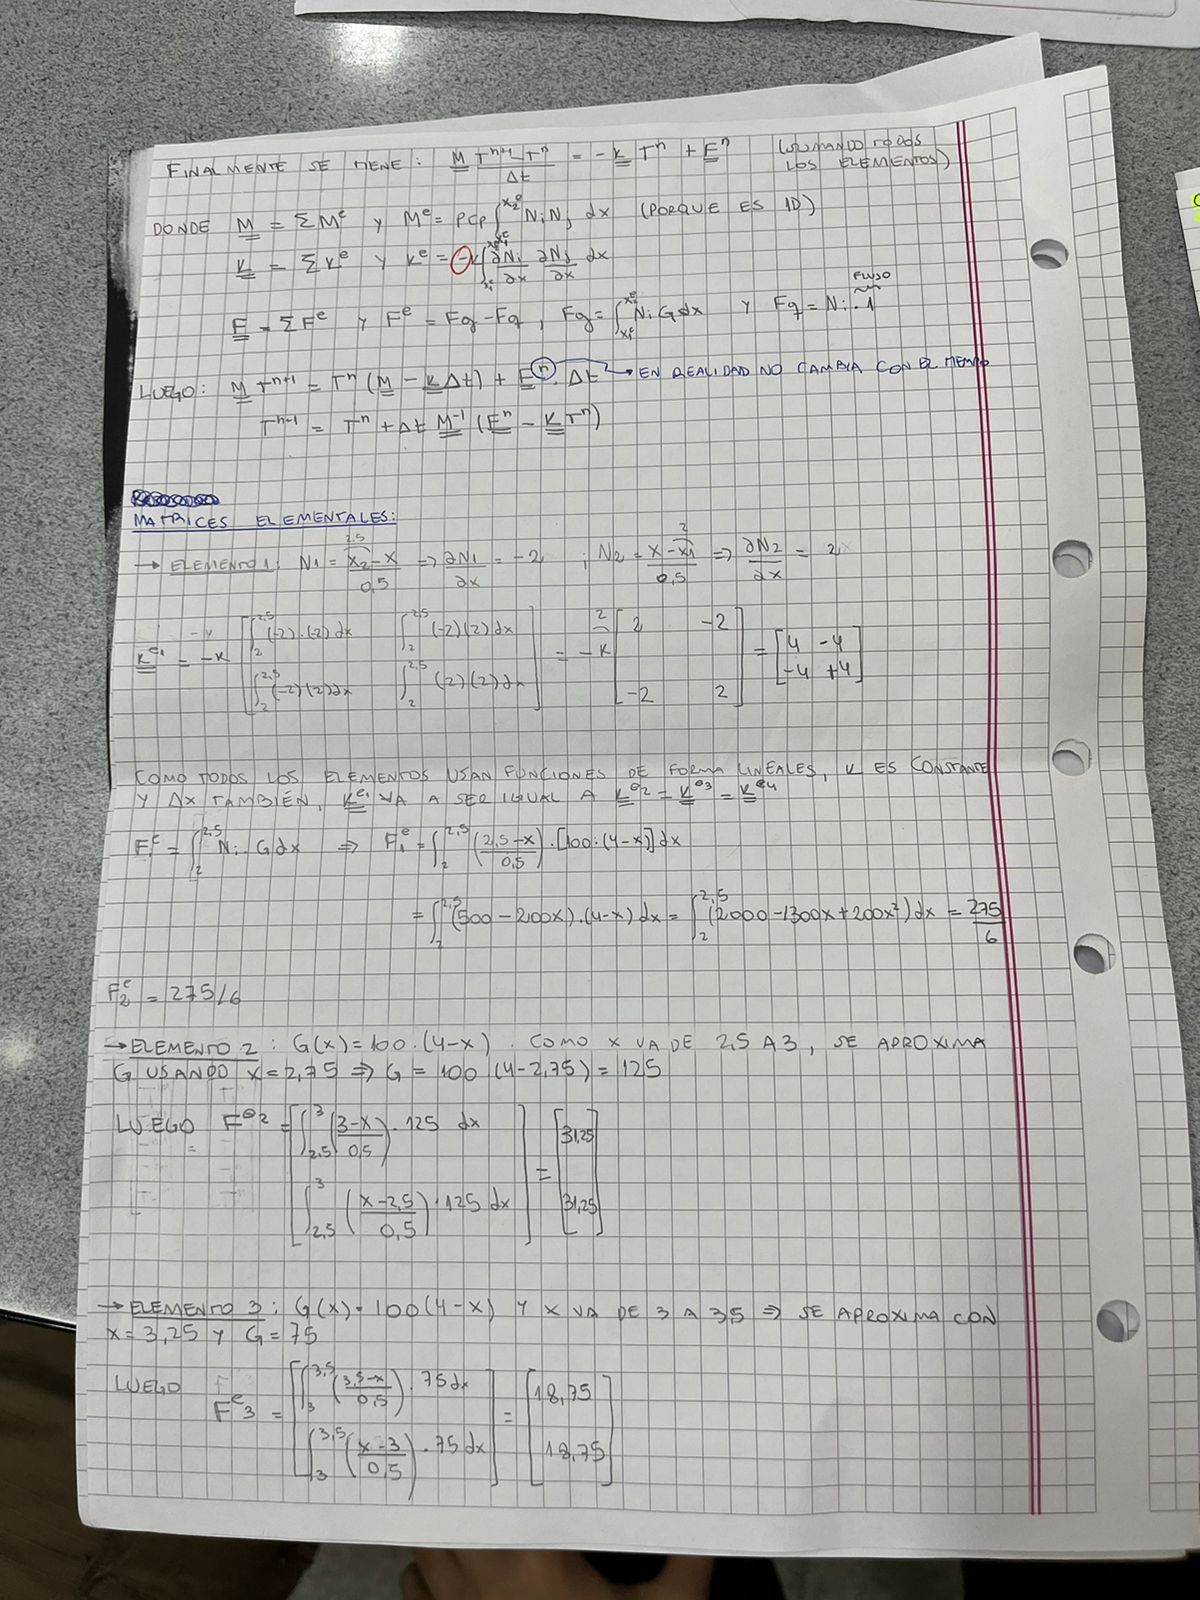 FINALMENTE SE TIENE: M (T^(n+1) - T^n)/Δt = -K T^n + F^n (SUMANDO TODOS LOS ELEMENTOS)
DONDE M = ΣM^e Y M^e = ρCp ∫_{x1^e}^{x2^e} Ni Nj dx (PORQUE ES 1D)
K = ΣK^e Y K^e = -K ∫ ∂Ni/∂x ∂Nj/∂x dx
F = ΣF^e Y F^e = Fg - Fq, Fg = ∫_{x1^e}^{x2^e} Ni G dx Y Fq = Ni . 1 FLUJO
LUEGO: M T^(n+1) = T^n (M - KΔt) + F^n . Δt → EN REALIDAD NO CAMBIA CON EL TIEMPO
= T^n + Δt M^-1 (F^n - K T^n)
MATRICES ELEMENTALES:
→ ELEMENTO 1: N1 = (x2 - x)/0,5 ⇒ ∂N1/∂x = -2 ; N2 = (x - x1)/0,5 ⇒ ∂N2/∂x = 2
2,5 2
K^e1 = -K [∫_2^2,5 (-2).(-2) dx ∫_2^2,5 (-2)(2) dx
∫_2^2,5 (-2)(2) dx ∫_2^2,5 (2)(2) dx] = -K [2 -2 -2 2] = [4 -4 -4 +4]
COMO TODOS LOS ELEMENTOS USAN FUNCIONES DE FORMA LINEALES, K ES CONSTANTE
Y ΔX TAMBIÉN, K^e1 VA A SER IGUAL A K^e2 = K^e3 = K^e4
F_i^e = ∫_2^2,5 Ni G dx ⇒ F_1^e = ∫_2^2,5 ((2,5-x)/0,5) . [100.(4-x)] dx
= ∫_2^2,5 (500 - 200x).(4-x) dx = ∫_2^2,5 (2000 - 1300x + 200x²) dx = 275/6
F_2^e = 275/6
→ ELEMENTO 2: G(x) = 100.(4-x). COMO X VA DE 2,5 A 3, SE APROXIMA
G USANDO X = 2,75 ⇒ G = 100 (4-2,75) = 125
LUEGO F^e2 = [∫_2,5^3 ((3-x)/0,5) . 125 dx
∫_2,5^3 ((x-2,5)/0,5) . 125 dx] = [31,25 31,25]
→ ELEMENTO 3: G(x) = 100(4-x) Y X VA DE 3 A 3,5 ⇒ SE APROXIMA CON
X = 3,25 Y G = 75
LUEGO F^e3 = [∫_3^3,5 ((3,5-x)/0,5) . 75 dx
∫_3^3,5 ((x-3)/0,5) . 75 dx] = [18,75 18,75]